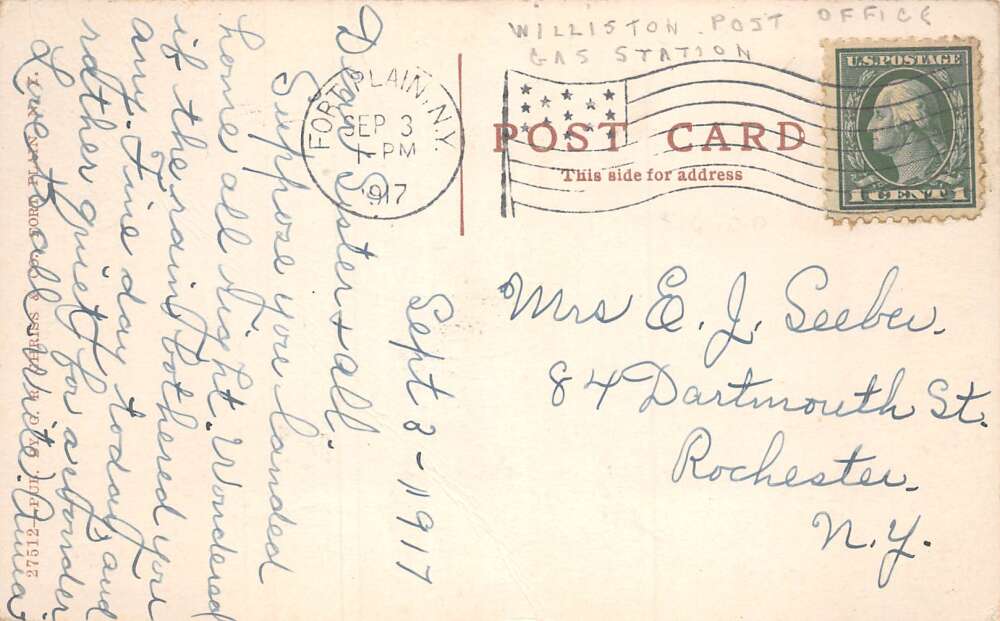 WILLISTON POST OFFICE
GAS STATION
U.S. POSTAGE
1 CENT 1
FORT PLAIN, N.Y.
SEP 3
1 PM
1917
POST CARD
This side for address
Sept 3 - 1917
Dear Syster & all.
Suppose you landed
home all right. Wondered
if the rain bothered you
any. Fine day today and
rather quiet for a
Love to all write. Anna
Mrs E. J. Seeber.
84 Dartmouth St.
Rochester.
N.Y.
27512 PUB. BY
FORT PLAIN, N. Y.